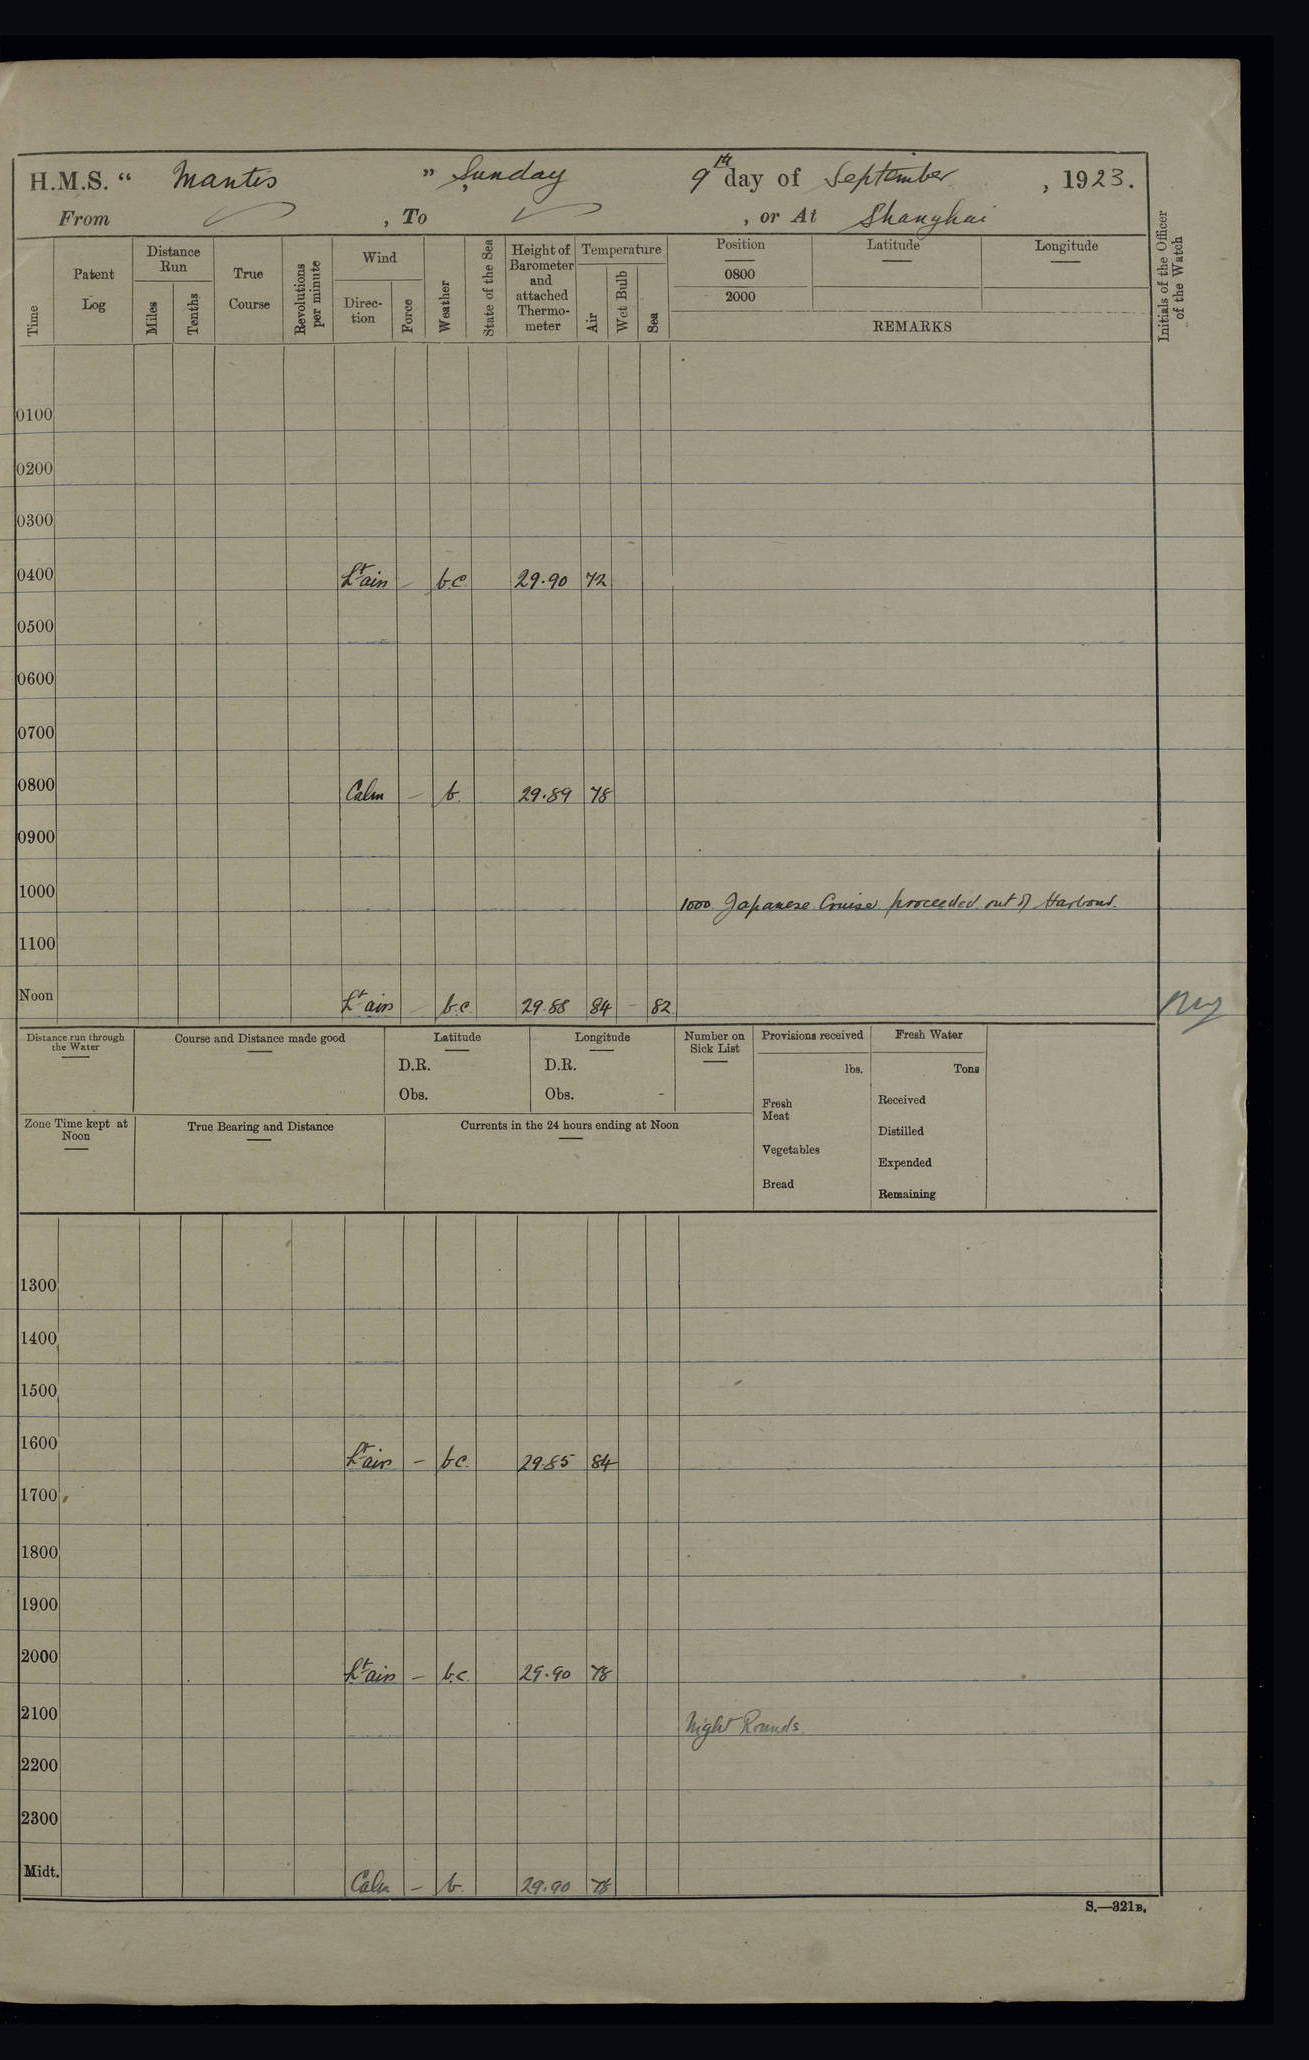 H.M.S. “ Mantis ” Sunday, 9th day of September , 1923.
From , To , or At Shanghai
Time
Patent Log
Distance Run
Miles
Tenths
True Course
Revolutions per minute
Wind
Direc-tion
Force
Weather
State of the Sea
Height of Barometer and attached Thermo-meter
Temperature
Air
Wet Bulb
Sea
Position
0800
2000
Latitude
Longitude
REMARKS
Initials of the Officer of the Watch
0100
0200
0300
0400 Lt airs – b.c. 29.90 72
0500
0600
0700
0800 Calm – b. 29.89 78
0900
1000 1000 Japanese Cruiser proceeded out of Harbour.
1100
Noon Lt airs – b.c. 29.88 84 – 82
Distance run through the Water
Course and Distance made good
Latitude
D.R.
Obs.
Longitude
D.R.
Obs. –
Number on Sick List
Provisions received
lbs.
Fresh Meat
Vegetables
Bread
Fresh Water
Tons
Received
Distilled
Expended
Remaining
Zone Time kept at Noon
True Bearing and Distance
Currents in the 24 hours ending at Noon
1300
1400
1500
1600 Lt airs – b.c. 29.85 84
1700
1800
1900
2000 Lt airs – b.c. 29.90 78
2100 Night Rounds.
2200
2300
Midt. Calm – b. 29.90 78
S.—321B.